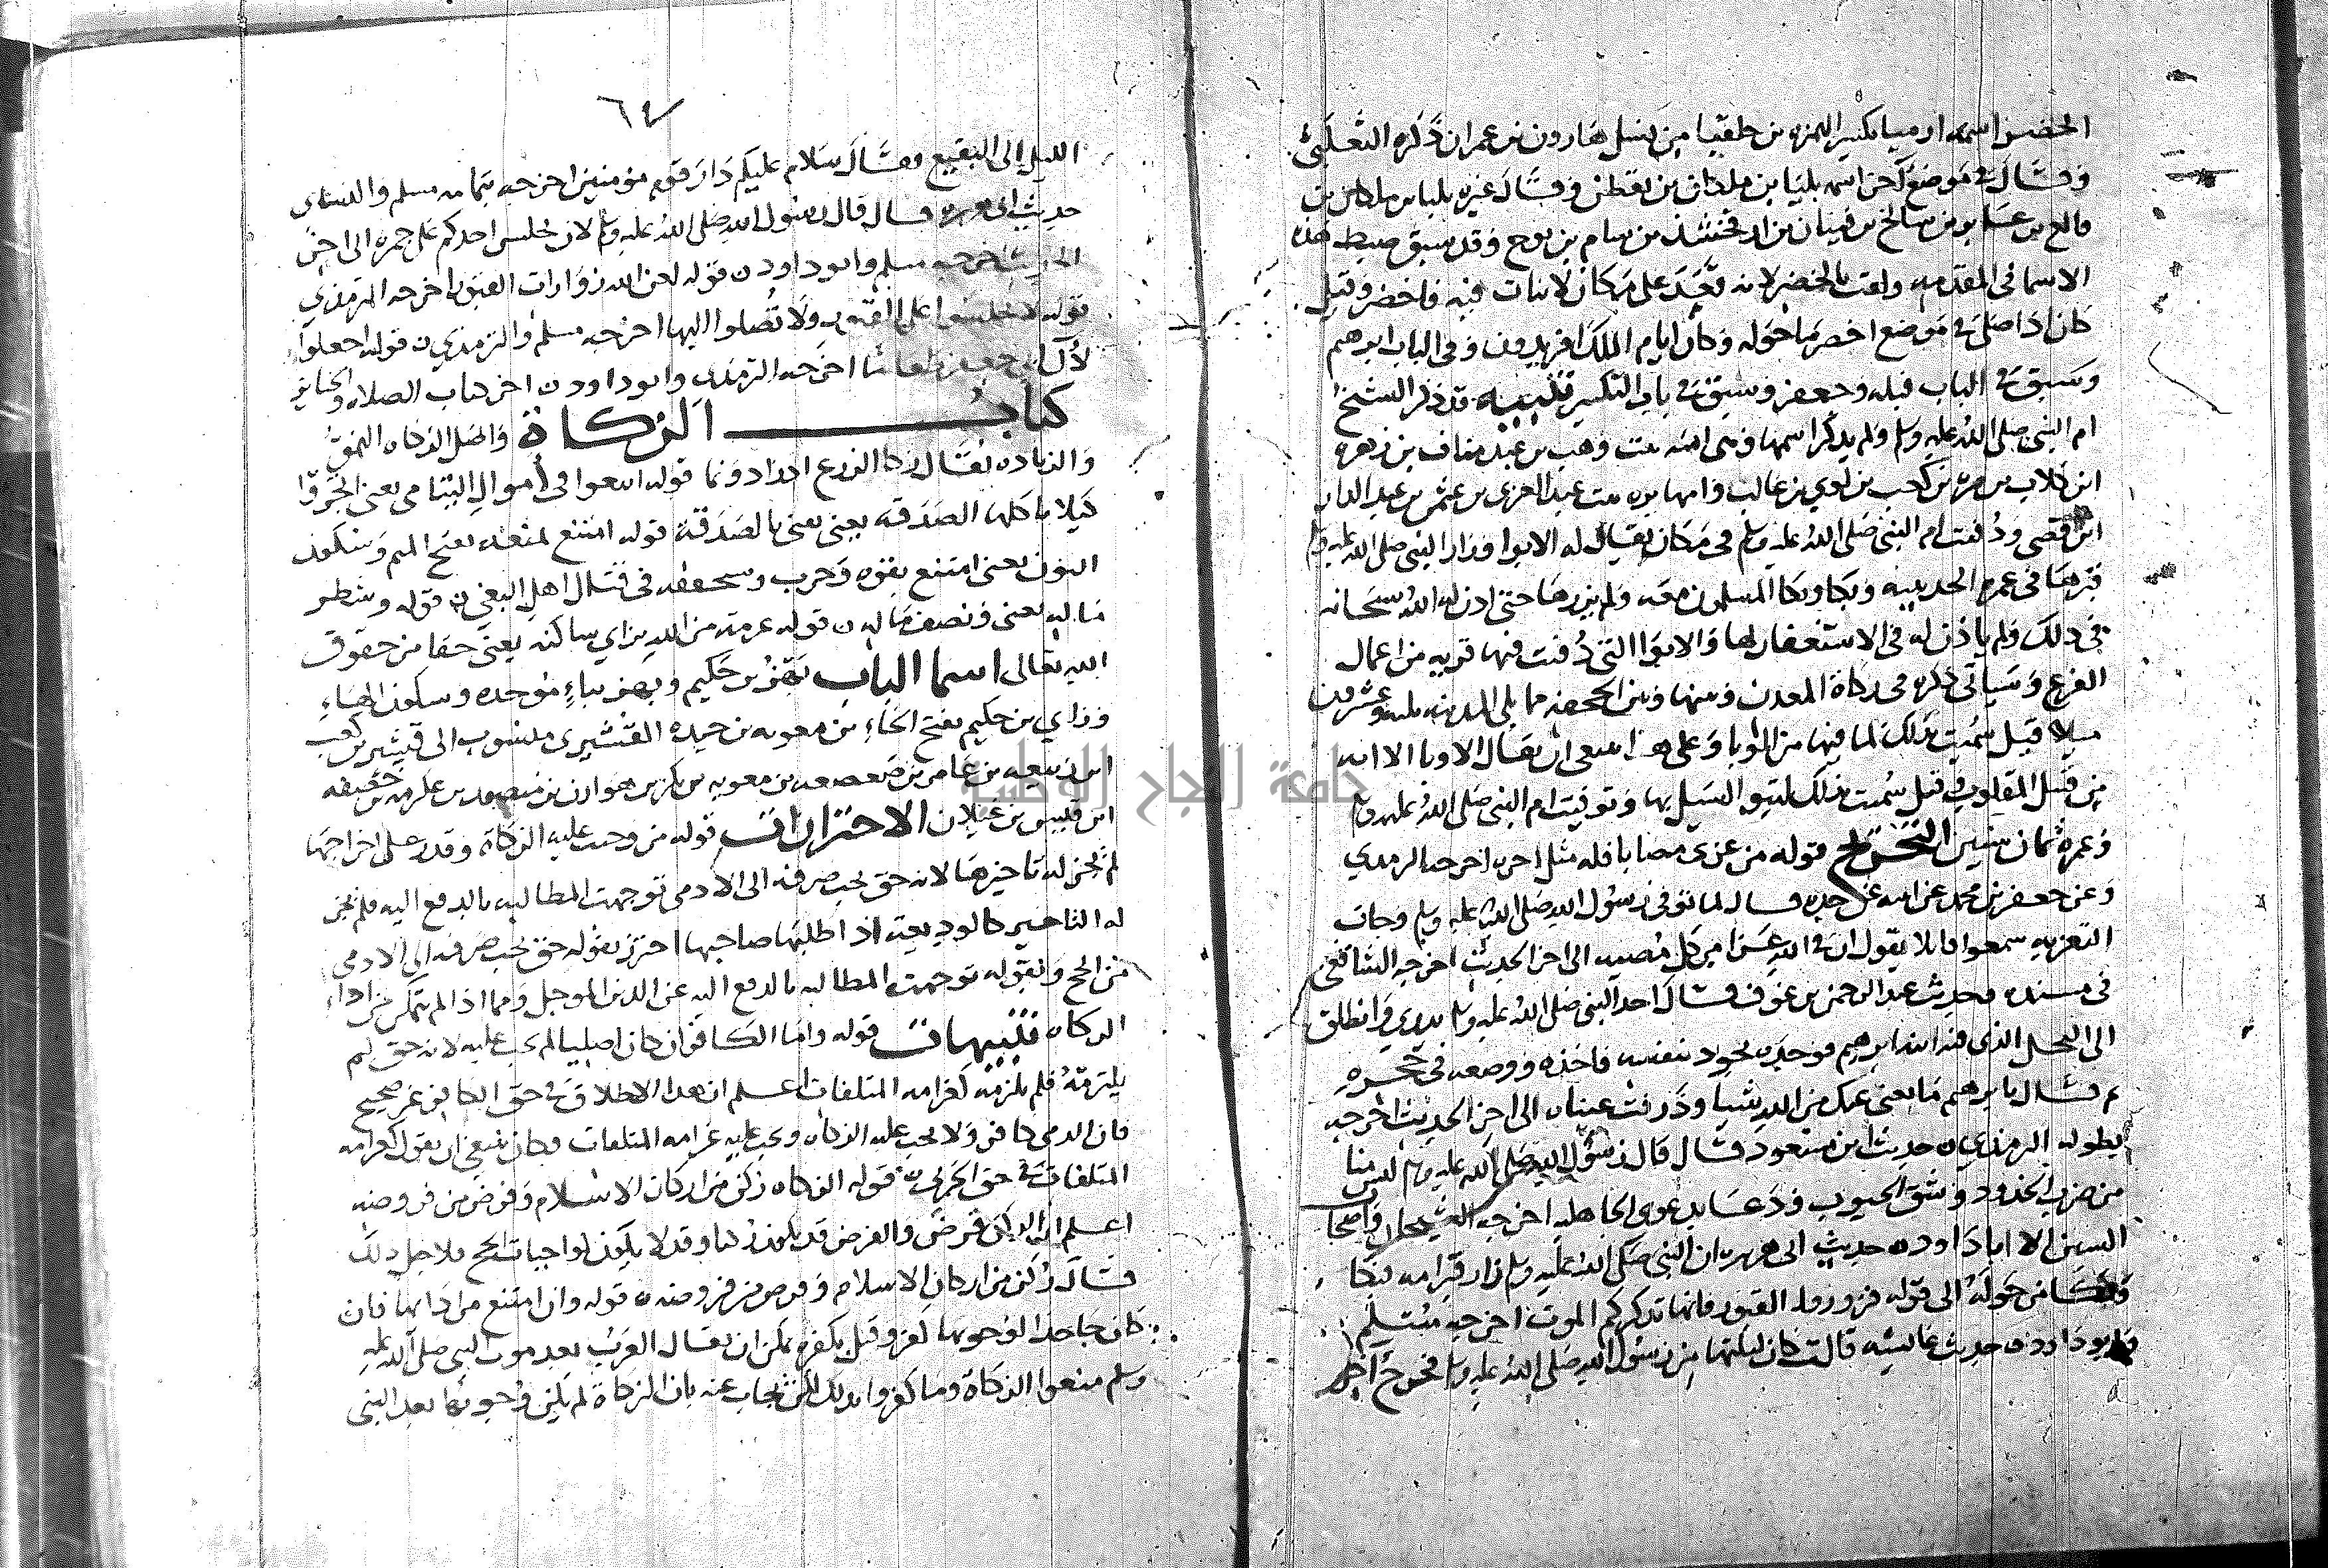 الخضر اسمه ارميا بكسر الهمزه بن حلقيا من نسل هارون بن عمران ذكره الثعلبي
وقال في موضع آخر اسمه بليا بن ملكان بن يقطن وقال غيره بليا بن ملكان بن
فالع بن عابر بن شالخ بن قينان بن ارفخشذ بن سام بن نوح وقد سبق ضبط هذه
الاسما في المقدمه ولقب بالخضر لانه قعد على مكان لا نبات فيه فاخضر وقيل
كان اذا صلى في موضع اخضر ما حوله وكان ايام الملك افريدون وفي الباب ابرهيم
وسبق في الباب قبله وجعفر وسبق في باب التكبير تنبيه قد ذكر الشيخ
ام النبي صلى الله عليه وسلم ولم يذكر اسمها وهي امنه بنت وهب بن عبد مناف بن زهره
ابن كلاب بن مره بن كعب بن لوي بن غالب وامها بره بنت عبد العزى بن عثمن بن عبد الدار
ابن قصي ودفنت ام النبي صلى الله عليه وسلم في مكان يقال له الابوا وزار النبي صلى الله عليه وسلم
قبرها في عمره الحديبيه وبكا وبكا المسلمون معه ولم يزرها حتى اذن له الله سبحانه
في ذلك ولم ياذن له في الاستغفار لها والابوا التي دفنت فيها قريه من اعمال
الفرع وسياتي ذكره في زكاة المعدن وبينها وبين الجحفه مما يلي المدينه ثلثه وعشرون
ميلا قيل سميت بذلك لما فيها من الوبا وعلى هذا ينبغي ان يقال الاوبا الا انه
من قبل المقلوب وقيل سميت بذلك لتبو السيل بها وتوفيت ام النبي صلى الله عليه وسلم
وعمره ثمان سنين التخريج قوله من عزى مصابا فله مثل اجره اخرجه الترمذي
وعن جعفر بن محمد عن ابيه عن جده قال لما توفي رسول الله صلى الله عليه وسلم وجات
التعزيه سمعوا قايلا يقول ان في الله عزا من كل مصيبه الى اخر الحديث اخرجه الشافعي
في مسنده وحديث عبد الرحمن بن عوف قال اخذ النبي صلى الله عليه وسلم بيدي وانطلق
الى النخل الذي فيه ابنه ابرهيم فوجده يجود بنفسه فاخذه ووضعه في حجره
ثم قال يا برهيم ما نغني عنك من الله شيا وذرفت عيناه الى اخر الحديث اخرجه
بطوله الترمذي حديث ابن مسعود قال قال رسول الله صلى الله عليه وسلم ليس منا
من ضرب الخدود وشق الجيوب ودعا بدعوى الجاهليه اخرجه الشيخان واصحاب
السنن الا ابا داود حديث ابي هريره ان النبي صلى الله عليه وسلم زار قبر امه فبكا
وبكا من حوله الى قوله فزوروا القبور فانها تذكركم الموت اخرجه مسلم
وابو داود حديث عايشه قالت كان ليلتها من رسول الله صلى الله عليه وسلم يخرج اخر
٦٤
الليل الى البقيع وقال سلام عليكم دار قوم مومنين اخرجه بتمامه مسلم والنساي
حديث ابي هريره قال قال رسول الله صلى الله عليه وسلم لان يجلس احدكم على جمره الى اخر
الحديث اخرجه مسلم وابو داود قوله لعن الله زوارات القبور اخرجه الترمذي
قوله لا تجلسوا على القبور ولا تصلوا اليها اخرجه مسلم والترمذي قوله اجعلوا
لآل جعفر طعاما اخرجه الترمذي وابو داود اخر كتاب الصلاه والجنايز
كتاب الزكاة واصل الزكاه النمو
والزياده يقال زكا الزرع اذا زاد ونما قوله ابتغوا في أموال اليتامى يعني اتجروا
كيلا تاكلها الصدقه يعني يعني بالصدقة قوله امتنع بمنعه بفتح الميم وسكون
النون يعني امتنع بقوه وحرب وسحققه في قتال اهل البغي قوله وشطر
ماله يعني ونصف ماله قوله عزمة من الله بزاي ساكنه يعني حقا من حقوق
الله تعالى اسما الباب بهز بن حكيم وبهز بباءٍ موحده وسكون الهاء
وزاي بن حكيم بفتح الحاء بن معويه بن حيده القشيري منسوب الى قشير بن كعب
ابن ربيعه بن عامر بن صعصعه بن معويه بن بكر بن هوازن بن منصور بن عكرمه بن خصفه
ابن قيس بن غيلان الاحترازات قوله من وجبت عليه الزكاة وقدر على اخراجها
لم يجز له تاخيرها لانه حق يجب صرفه الى الادمي توجهت المطالبه بالدفع اليه فلم يجز
له التاخير كالوديعة اذا طلبها صاحبها احترز بقوله حق يجب صرفه الى الادمي
من الحج وبقوله توجهت المطالبه بالدفع اليه عن الدين الموجل ومما اذا لم يتمكن من اداء
الزكاه تنبيهات قوله واما الكافر ان كان اصليا لم يجب عليه لانه حق لم
يلتزمه فلم يلزمه كغرامه المتلفات اعلم ان هذا الاطلاق في حق الكافر غير صحيح
فان الذمي كافر ولا يجب عليه الزكاه ويجب عليه غرامه المتلفات وكان ينبغي ان يقول كغرامه
المتلفات في حق الحربي قوله الزكاه ركن من اركان الاسلام وفرض من فروضه
اعلم ان الركن فرض والفرض قد يكون ركنا وقد لا يكون كواجبات الحج فلاجل ذلك
قال ركن من اركان الاسلام وفرض من فروضه قوله وان امتنع من ادايها فان
كان جاحدا لوجوبها كفر وقيل بكفره يمكن ان يقال العرب بعد موت النبي صلى الله عليه
وسلم منعوا الزكاة وما كفروا بذلك لكن يجاب عنه بان الزكاة لم يكن وجوبها بعد النبي